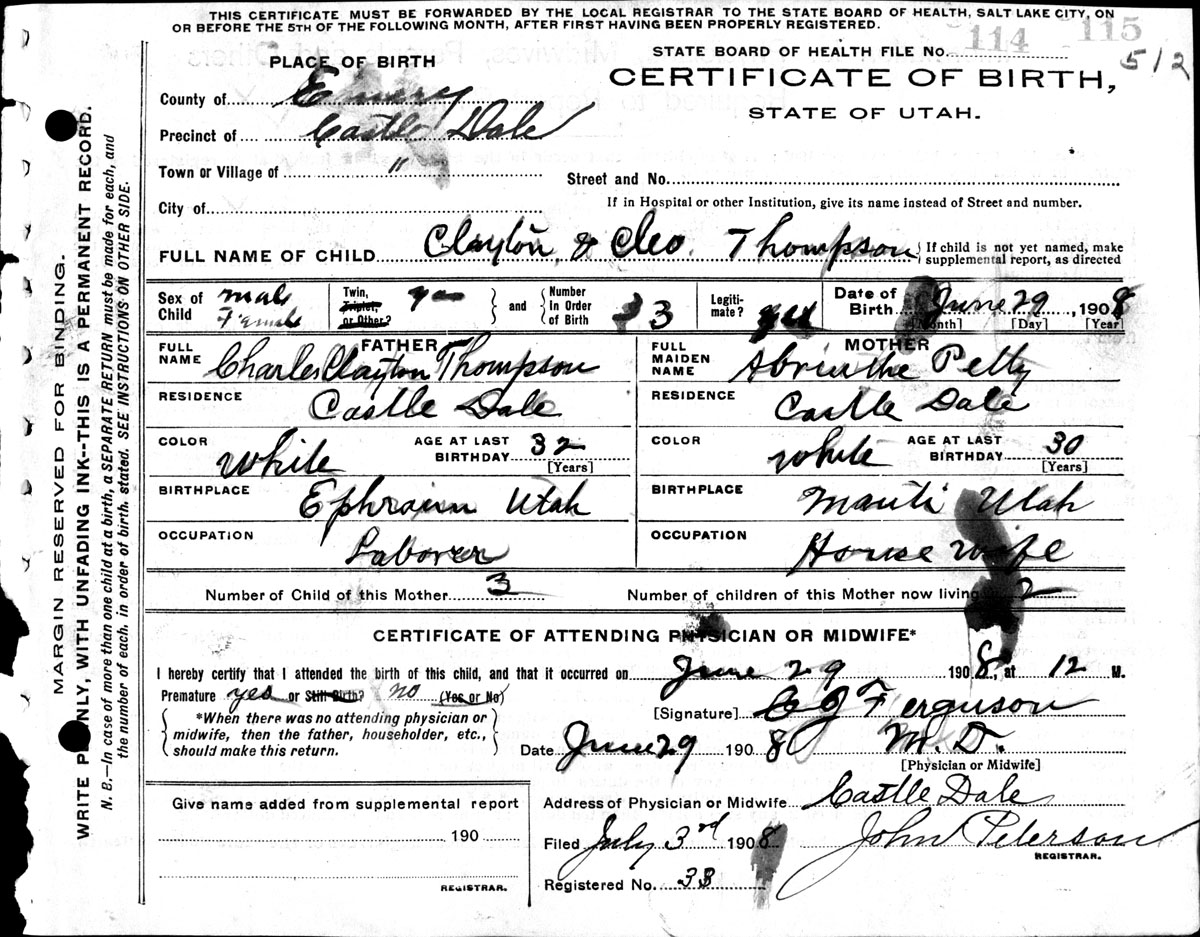 THIS CERTIFICATE MUST BE FORWARDED BY THE LOCAL REGISTRAR TO THE STATE BOARD OF HEALTH, SALT LAKE CITY, ON
OR BEFORE THE 5TH OF THE FOLLOWING MONTH, AFTER FIRST HAVING BEEN PROPERLY REGISTERED.
114 115
STATE BOARD OF HEALTH FILE No. 512
PLACE OF BIRTH
CERTIFICATE OF BIRTH,
STATE OF UTAH.
County of Emery
Precinct of Castle Dale
Town or Village of "
Street and No.
City of
If in Hospital or other Institution, give its name instead of Street and number.
FULL NAME OF CHILD Clayton, & Cleo. Thompson { If child is not yet named, make supplemental report, as directed
Sex of Child male Female Twin, Triplet, or Other? yes } and { Number In Order of Birth 3 Legiti- mate? yes Date of Birth June 29, 1908
[Month] [Day] [Year]
FATHER
FULL NAME Charles Clayton Thompson
RESIDENCE Castle Dale
COLOR White AGE AT LAST BIRTHDAY 32 [Years]
BIRTHPLACE Ephraim Utah
OCCUPATION Laborer
MOTHER
FULL MAIDEN NAME Abrinthe Petty
RESIDENCE Castle Dale
COLOR White AGE AT LAST BIRTHDAY 30 [Years]
BIRTHPLACE Manti Utah
OCCUPATION House wife
Number of Child of this Mother 3 Number of children of this Mother now living 2
CERTIFICATE OF ATTENDING PHYSICIAN OR MIDWIFE*
I hereby certify that I attended the birth of this child, and that it occurred on June 29 1908, at 12 M.
Premature yes or Still Birth? no (Yes or No)
*When there was no attending physician or
midwife, then the father, householder, etc.,
should make this return.
[Signature] C J Ferguson
Date June 29 1908 M.D.
[Physician or Midwife]
Give name added from supplemental report
190
REGISTRAR.
Address of Physician or Midwife Castle Dale
Filed July 3rd 1908 John Peterson
REGISTRAR.
Registered No. 33
MARGIN RESERVED FOR BINDING.
WRITE PLAINLY, WITH UNFADING INK--THIS IS A PERMANENT RECORD.
N. B.—In case of more than one child at a birth, a SEPARATE RETURN must be made for each, and
the number of each, in order of birth, stated. SEE INSTRUCTIONS ON OTHER SIDE.